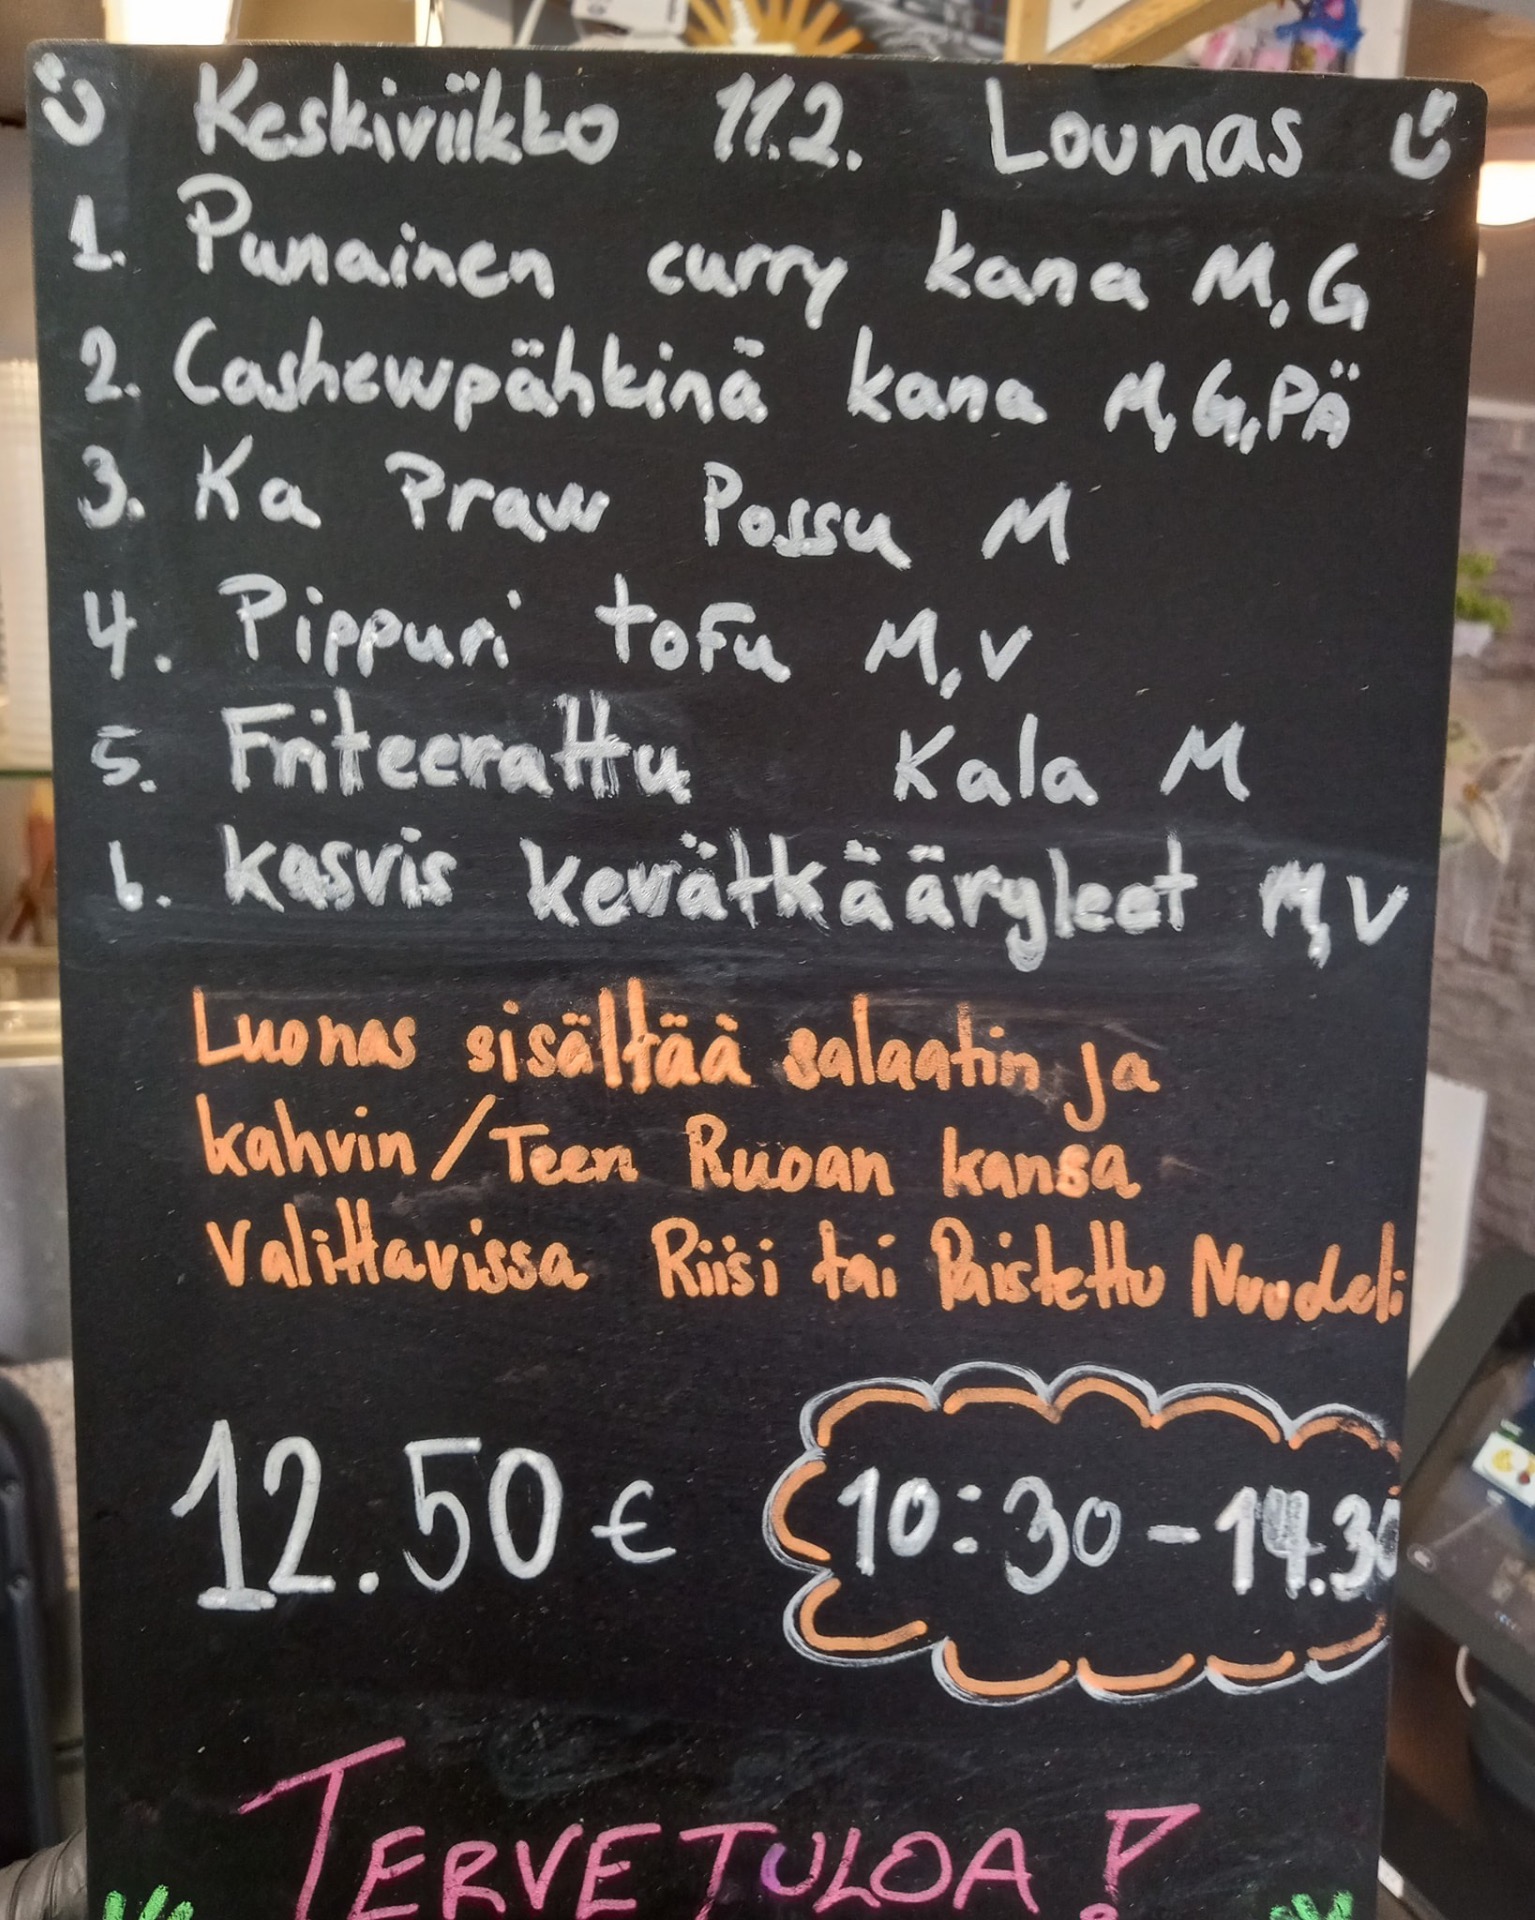 Keskiviikko 11.2. Lounas
1. Punainen curry kana M,G
2. Cashewpähkinä kana M,G,PÄ
3. Ka Praw Possu M
4. Pippuri tofu M,V
5. Friteerattu Kala M
6. kasvis kevätkääryleet M,V
Luonas sisältää salaatin ja
kahvin/Teen Ruoan kansa
Valittavissa Riisi tai Paistettu Nuudeli
12.50€
10:30-14.30
TERVETULOA!